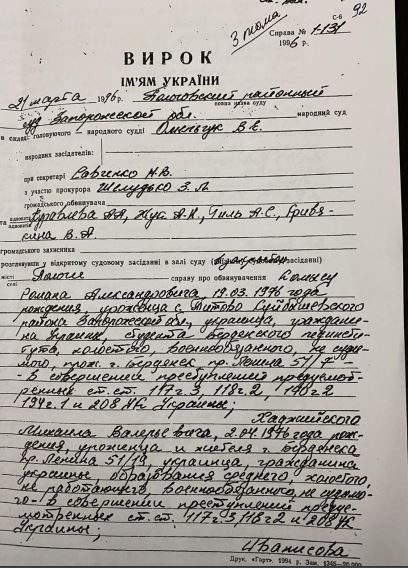 С-6
92
3 тома
Справа № 1-131
1996 р.
ВИРОК
ІМ'ЯМ УКРАЇНИ
21 марта 1996 р. Пологовский районный
повна назва суду
суд Запорожской обл. народний суд
в складі: головуючого народного судді Омельчук В.Е.
народних засідателів:
при секретарі Савченко Н.В.
з участю прокурора Шелудько З.Л.
громадського обвинувача
та адвоката Журавлева А.А., Жук А.К., Гиль А.С.,
В.А.
громадського захисника
розглянувши у відкритому судовому засіданні в залі суду засіданні)
місті
селі Пологи справу по обвинуваченню
Романа Александровича 19.03.1976 года
рождения, уроженца с. Титово Куйбышевского
района Запорожской обл., украинца, гражданина
Украины, студента Бердянского пединсти-
тута, холостого, военнообязанного, не суди-
мого, прож. г. Бердянск пр. Ленина 51/
- в совершении преступлений предусмот-
ренных ст.ст. 117 ч.3, 118 ч.2, 140 ч.2
194 ч.1 и 208 УК Украины;
Хаджийского
Михаила Валерьевича, 2.04.1976 года рож-
дения, уроженца и жителя г. Бердянска
пр. Ленина 51/ , украинца, гражданина
Украины, образования среднего, холостого,
не работающего, военнообязанного, не судимо-
го - в совершении преступлений преду-
смотренных ст.ст. 117 ч.3, 118 ч.2 и 208 УК
Украины;
Друк. «Горт», 1994 р. Зам. 1345—20 000.